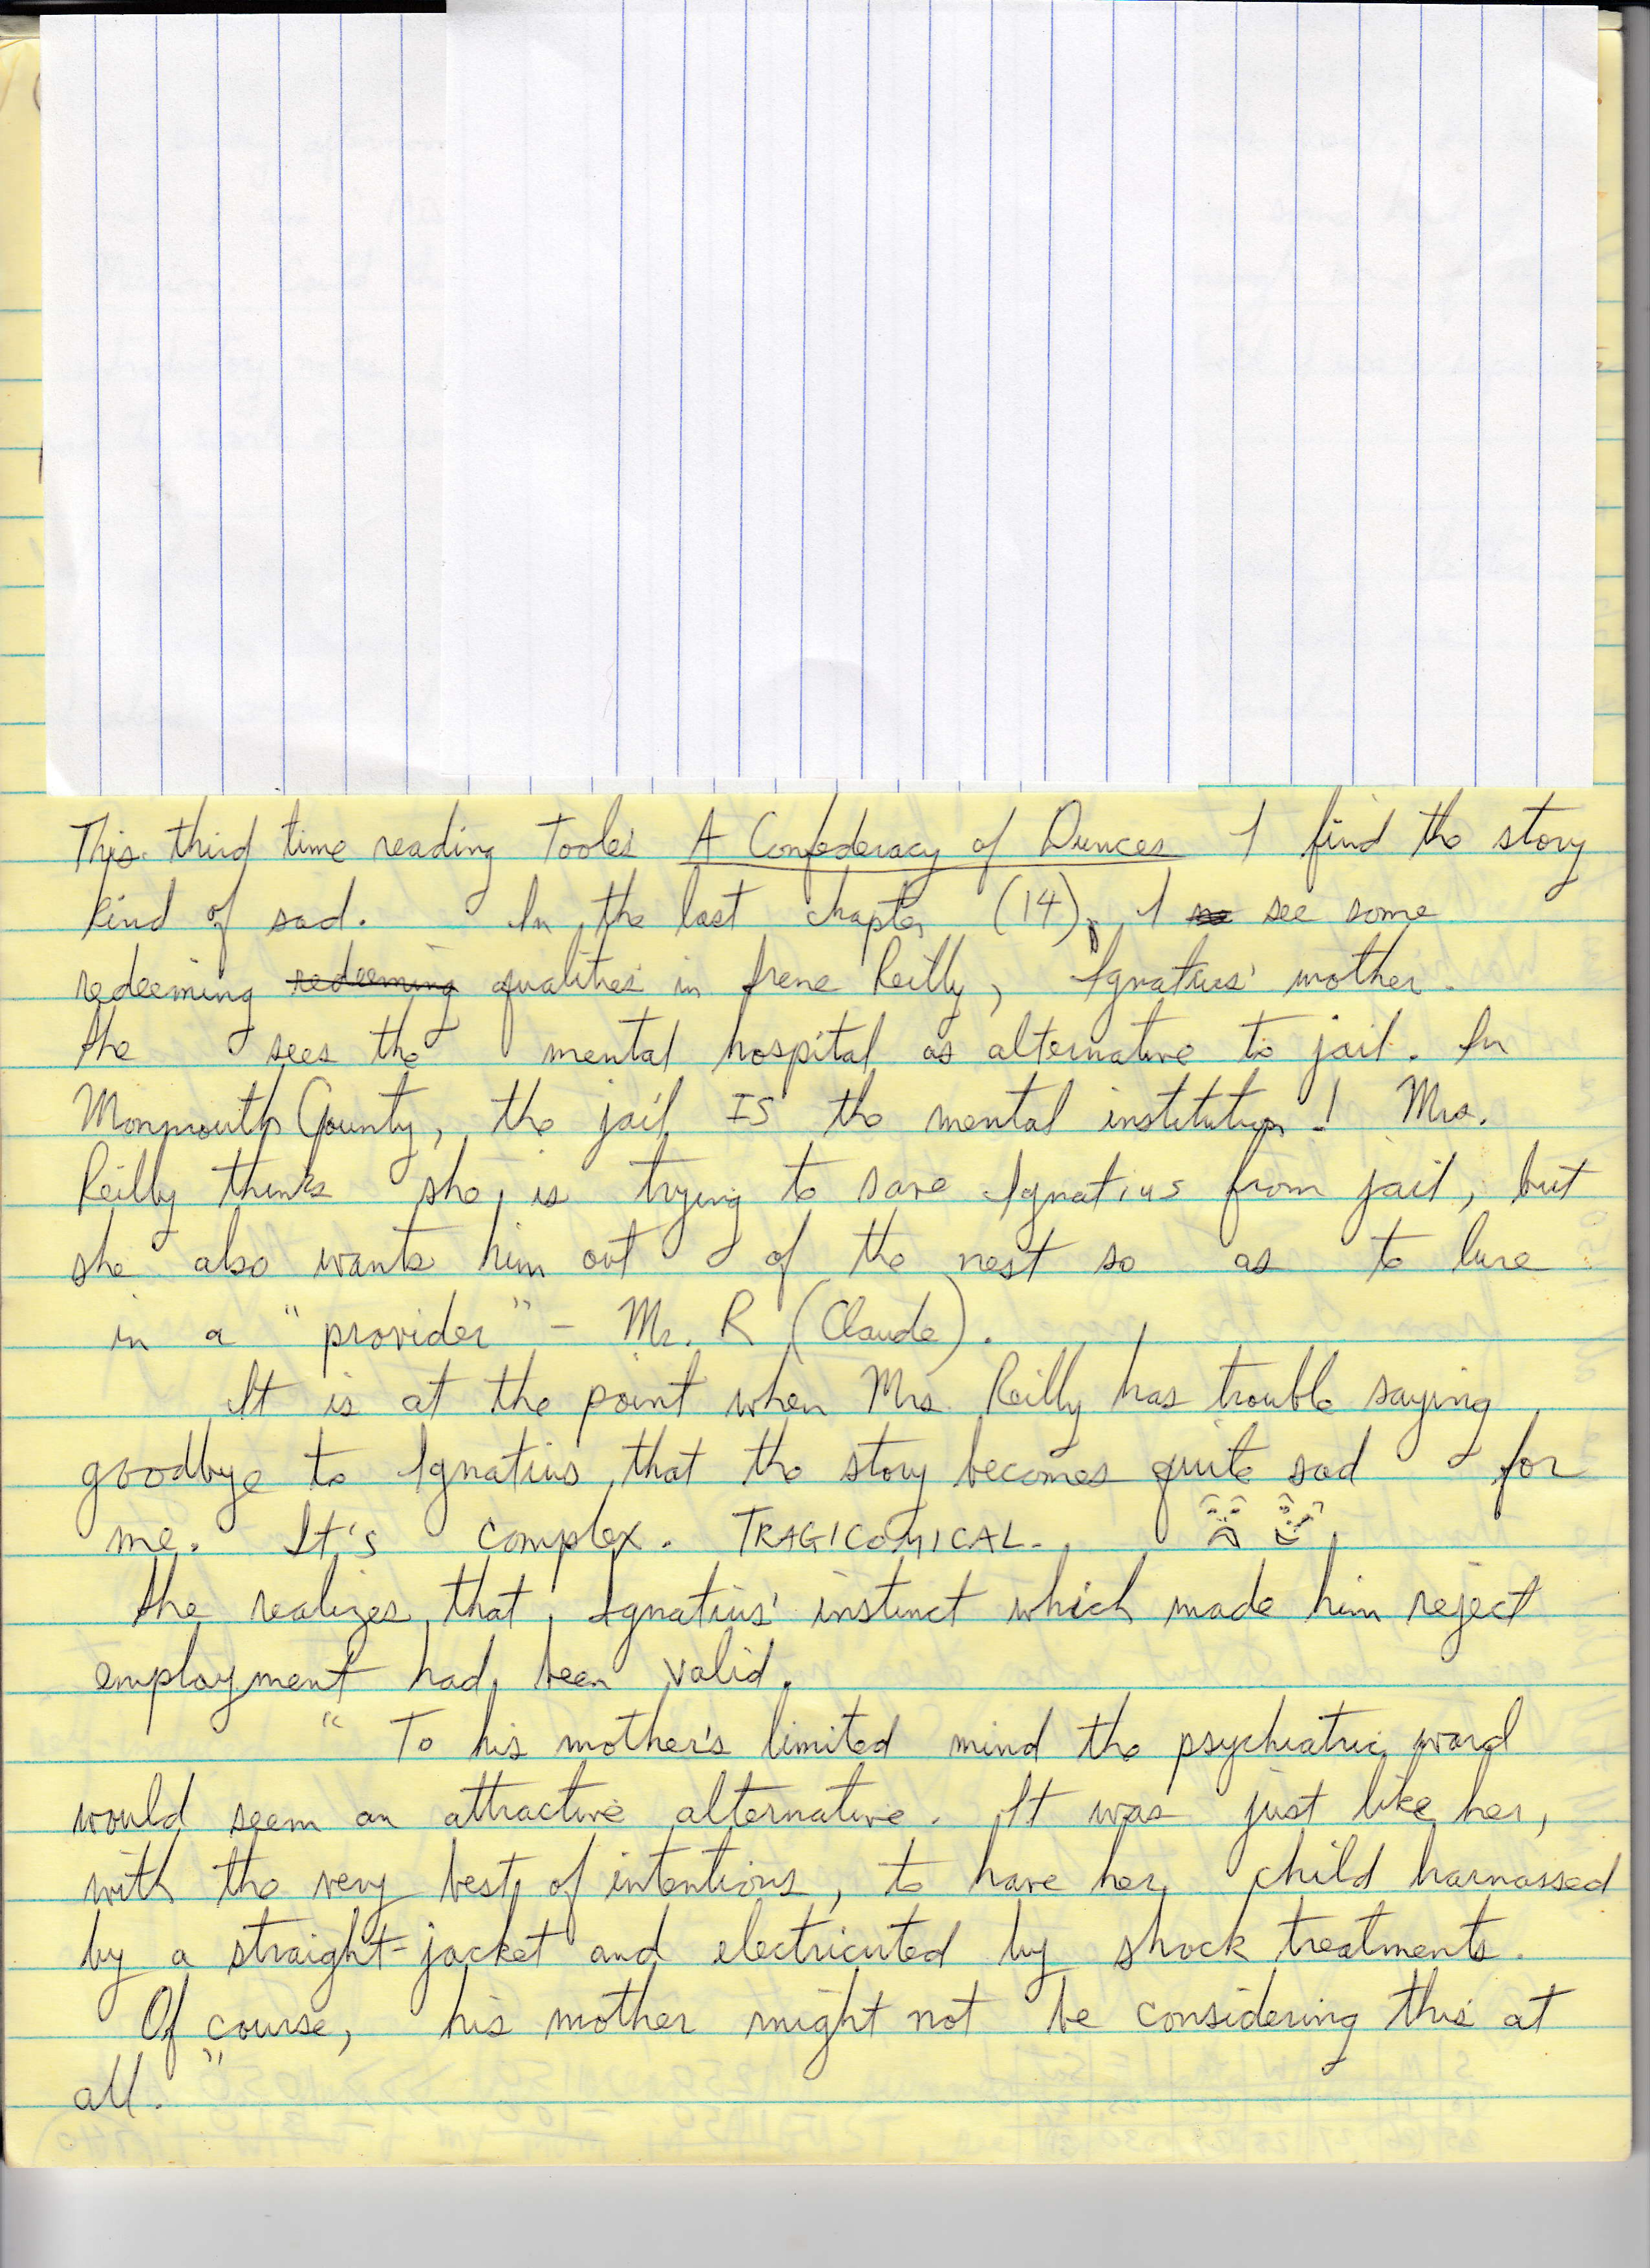 This third time reading Tooles A Confederacy of Dunces I find the story
kind of sad. In the last chapter (14), I see some
redeeming redeeming qualities in Irene Reilly, Ignatius' mother.
She sees the mental hospital as alternative to jail. In
Monmouth County, the jail IS the mental institution! Mrs.
Reilly thinks she is trying to save Ignatius from jail, but
she also wants him out of the nest so as to lure
in a "provider" - Mr. R (Claude).
It is at the point when Mrs. Reilly has trouble saying
goodbye to Ignatius that the story becomes quite sad for
me. It's complex. TRAGICOMICAL.
She realizes that Ignatius' instinct which made him reject
employment had been valid.
" To his mother's limited mind the psychiatric ward
would seem an attractive alternative. It was just like her,
with the very best of intentions, to have her child harnassed
by a straight-jacket and electricuted by shock treatments.
Of course, his mother might not be considering this at
all. "